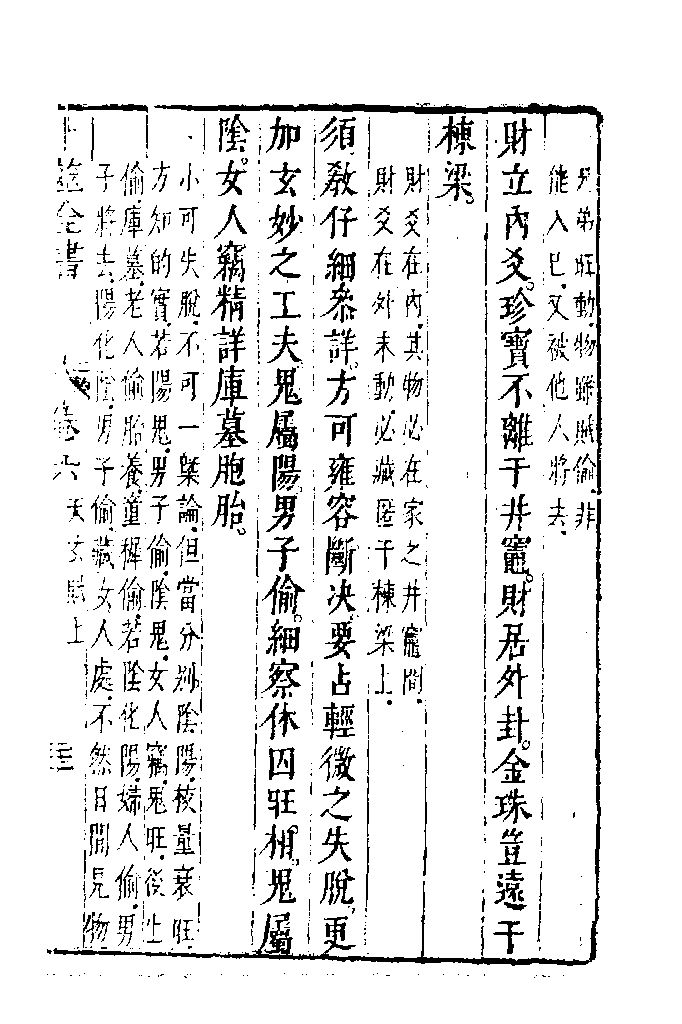 兄弟旺動.物雖賊偷.非
能入已.又被他人將去.
財立內爻。珍寶不離于井竈。財居外卦。金珠豈遠于
棟梁。
財爻在內.其物必在家之井竈間.
財爻在外未動.必藏匿于棟梁上.
須教仔細叅詳。方可雍容斷决.要占輕微之失脫。更
加玄妙之工夫.鬼屬陽.男子偷。細察休囚旺相。鬼屬
陰。女人竊精詳庫墓胞胎。
小可失脫.不可一槩論.但當分別陰陽.校量衰旺.
方知的實.若陽鬼.男子偷.陰鬼.女人竊.鬼旺.後生
偷.庫墓.老人偷.胎養.童穉偷.若陰化陽.婦人偷.男
子將去.陽化陰.男子偷.藏女人處.不然日間見物
筮全書 卷六 天玄賦上